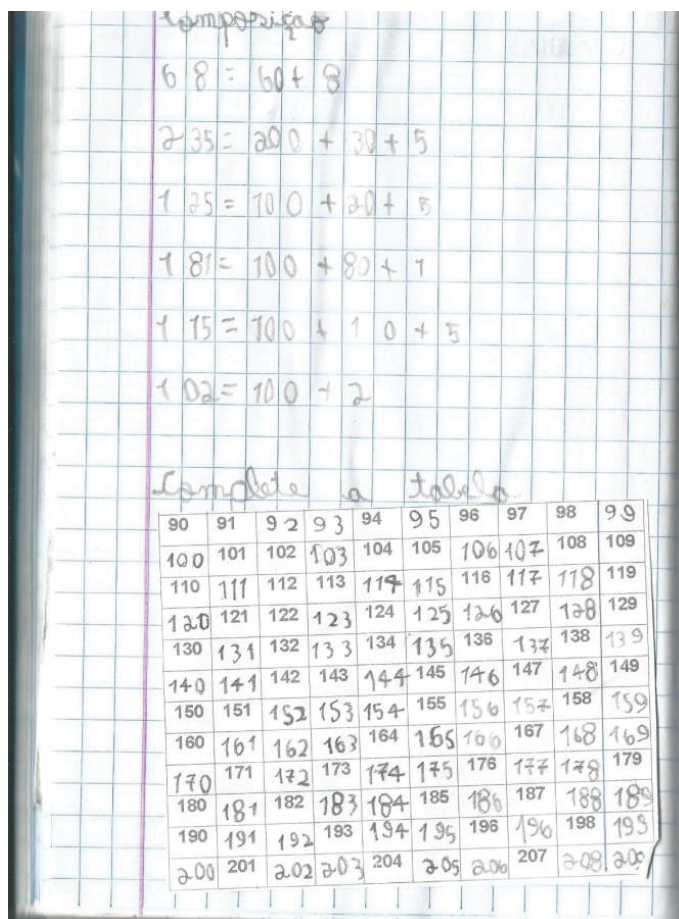 composição
68 = 60 + 8
235 = 200 + 30 + 5
125 = 100 + 20 + 5
181 = 100 + 80 + 1
115 = 100 + 10 + 5
102 = 100 + 2
Complete a tabela
90 91 92 93 94 95 96 97 98 99
100 101 102 103 104 105 106 107 108 109
110 111 112 113 114 115 116 117 118 119
120 121 122 123 124 125 126 127 128 129
130 131 132 133 134 135 136 137 138 139
140 141 142 143 144 145 146 147 148 149
150 151 152 153 154 155 156 157 158 159
160 161 162 163 164 165 166 167 168 169
170 171 172 173 174 175 176 177 178 179
180 181 182 183 184 185 186 187 188 189
190 191 192 193 194 195 196 196 198 199
200 201 202 203 204 205 206 207 208 209